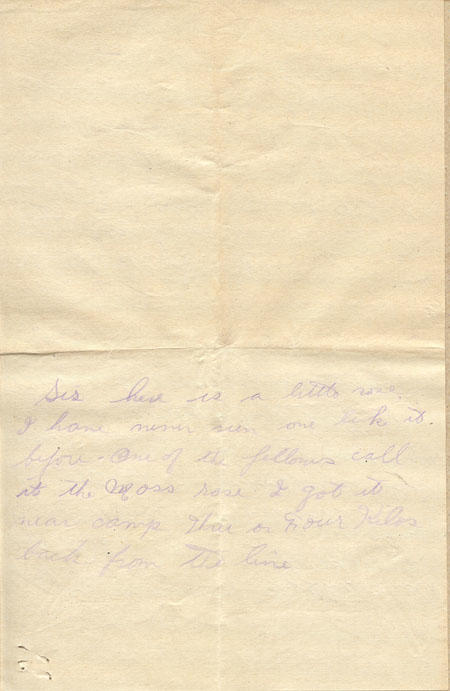 Sis here is a little rose.
I have never seen one lik it
before. One of the fellows call
it the Moss rose I got it
near camp thre or Four Kilos
back from the line